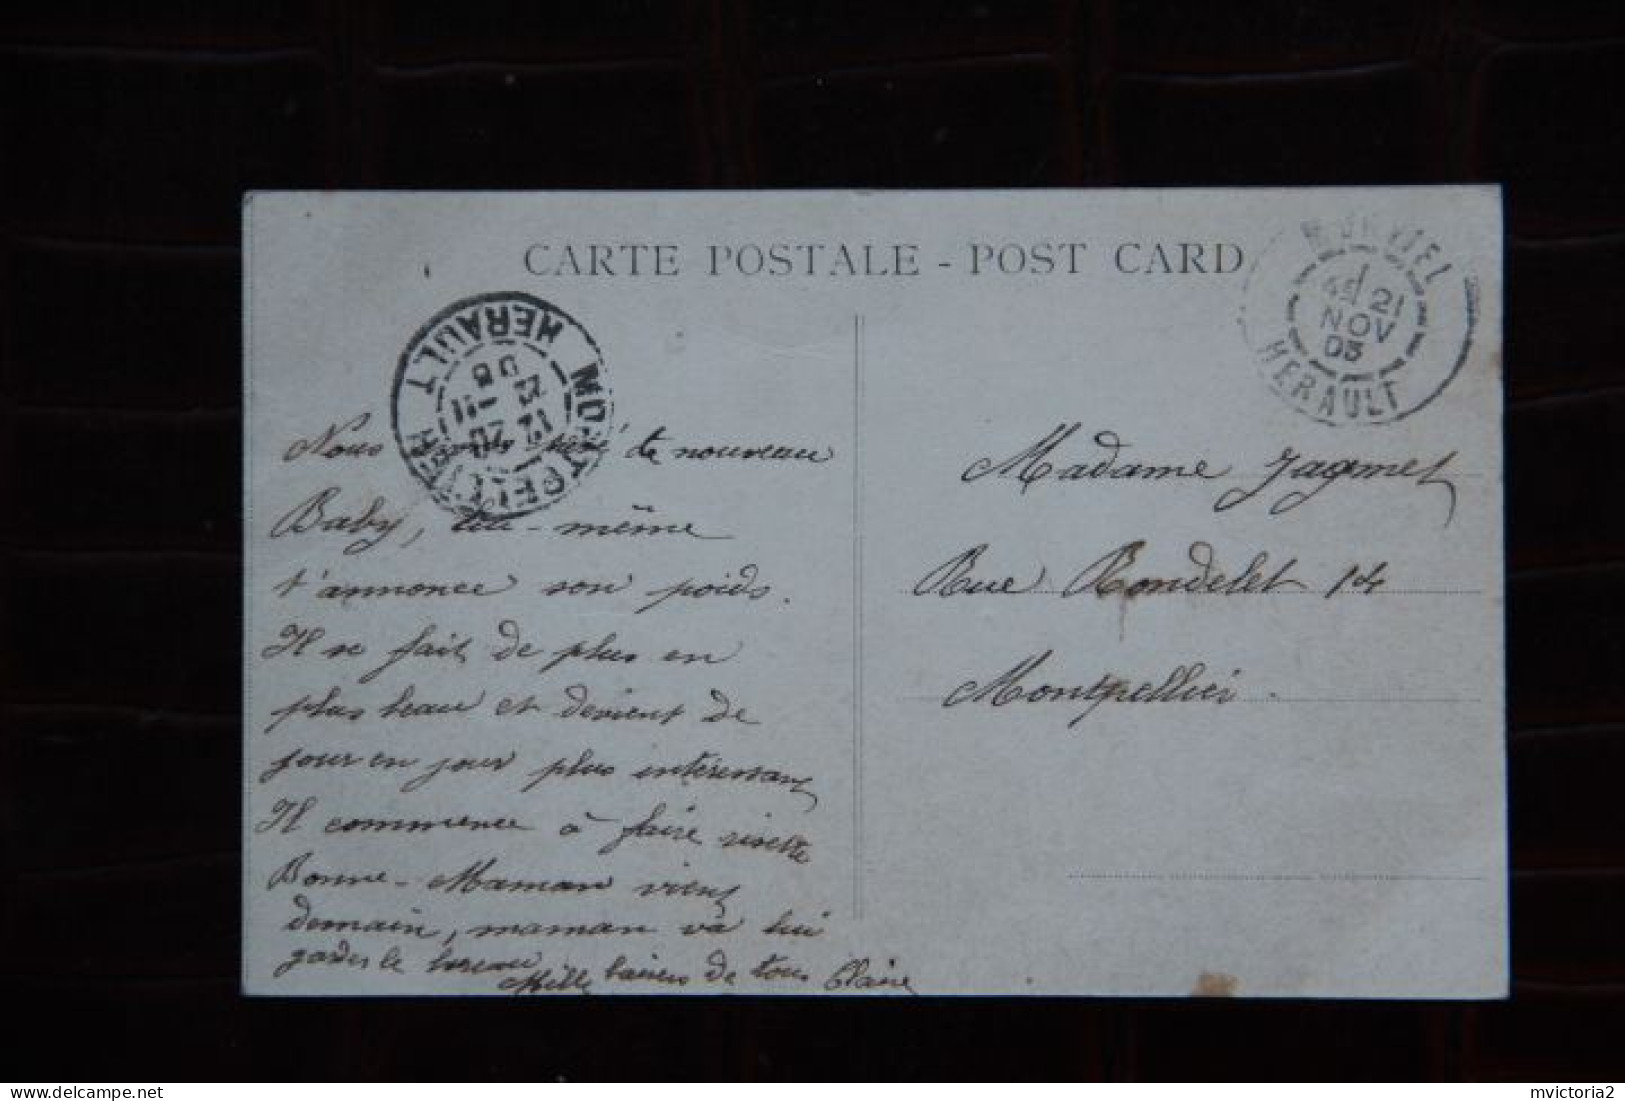 CARTE POSTALE - POST CARD
MONTPELLIER
HERAULT
MURVIEL
21
NOV
05
HERAULT
Nous avons pesé de nouveau
Baby, toi-même
t'annonce son poids.
Il se fait de plus en
plus beau et devient de
jour en jour plus intéressant
Il commence à faire risette
Bonne-Maman vient
demain, maman va lui
garder le bureau
Mille baisers de tous Claire
Madame Jagmet
Rue Rondelet 14
Montpellier.
mvictoria2